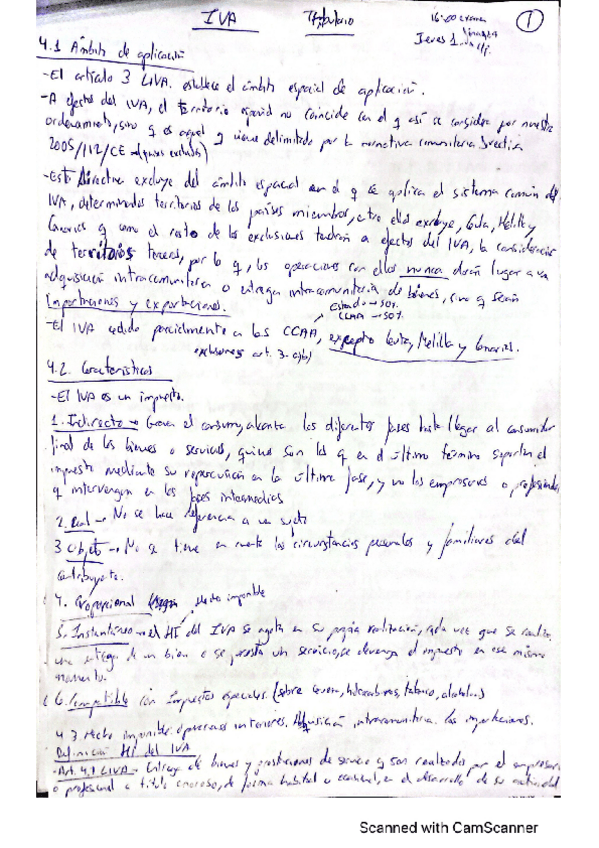 IVA Tributario 16:00 1
Jueves 1
4.1 Ámbito de aplicación
-El artículo 3 LIVA. establece el ámbito espacial de aplicación.
-A efectos del IVA, el territorio español no coincide con el q así se considera por nuestro
ordenamiento, sino q es aquel q viene delimitado por la normativa comunitaria Directiva
/112/CE
-Esta Directiva excluye del ámbito espacial en el q se aplica el sistema común del
IVA, determinados territorios de los países miembros, entre ellos excluye, Ceuta, Melilla y
Canarias q como el resto de las exclusiones tendrán a efectos del IVA, la consideración
de territorios terceros, por lo q, las operaciones con ellos nunca darán lugar a una
adquisición intracomunitaria o entrega intracomunitaria de bienes, sino q serán
Importaciones y exportaciones.
Estado → 50%
CCAA → 50%
-El IVA cedido parcialmente a las CCAA, excepto Ceuta, Melilla y Canarias.
exclusiones art. 3.
4.2. Características
-El IVA es un impuesto.
1. Indirecto → Grava el consumo, alcanza los diferentes fases hasta llegar al consumidor
final de los bienes o servicios, quienes son los q en el último término soportan el
impuesto mediante su repercusión en la última fase, y no los empresarios o profesionales
q intervengan en las fases intermedias
2. Real → No se hace referencia a un sujeto
3 Objeto → No se tiene en cuenta las circunstancias personales y familiares del
contribuyente.
4. Proporcional
5. Instantáneo → el HI del IVA se agota en su propia realización, cada vez que se realiza
una entrega de un bien o se presta un servicio, se devenga el impuesto en ese mismo
momento.
6. Compatible con Impuestos especiales. (sobre hidrocarburos, tabaco,
4.3. Hecho imponible: operaciones interiores. Adquisición intracomunitaria. Las importaciones.
Definición HI del IVA
-Art. 4.1 LIVA → Entrega de bienes y prestaciones de servicio q son realizadas por el empresario
o profesional a título oneroso, de forma habitual u ocasional, en el desarrollo de su actividad
Scanned with CamScanner